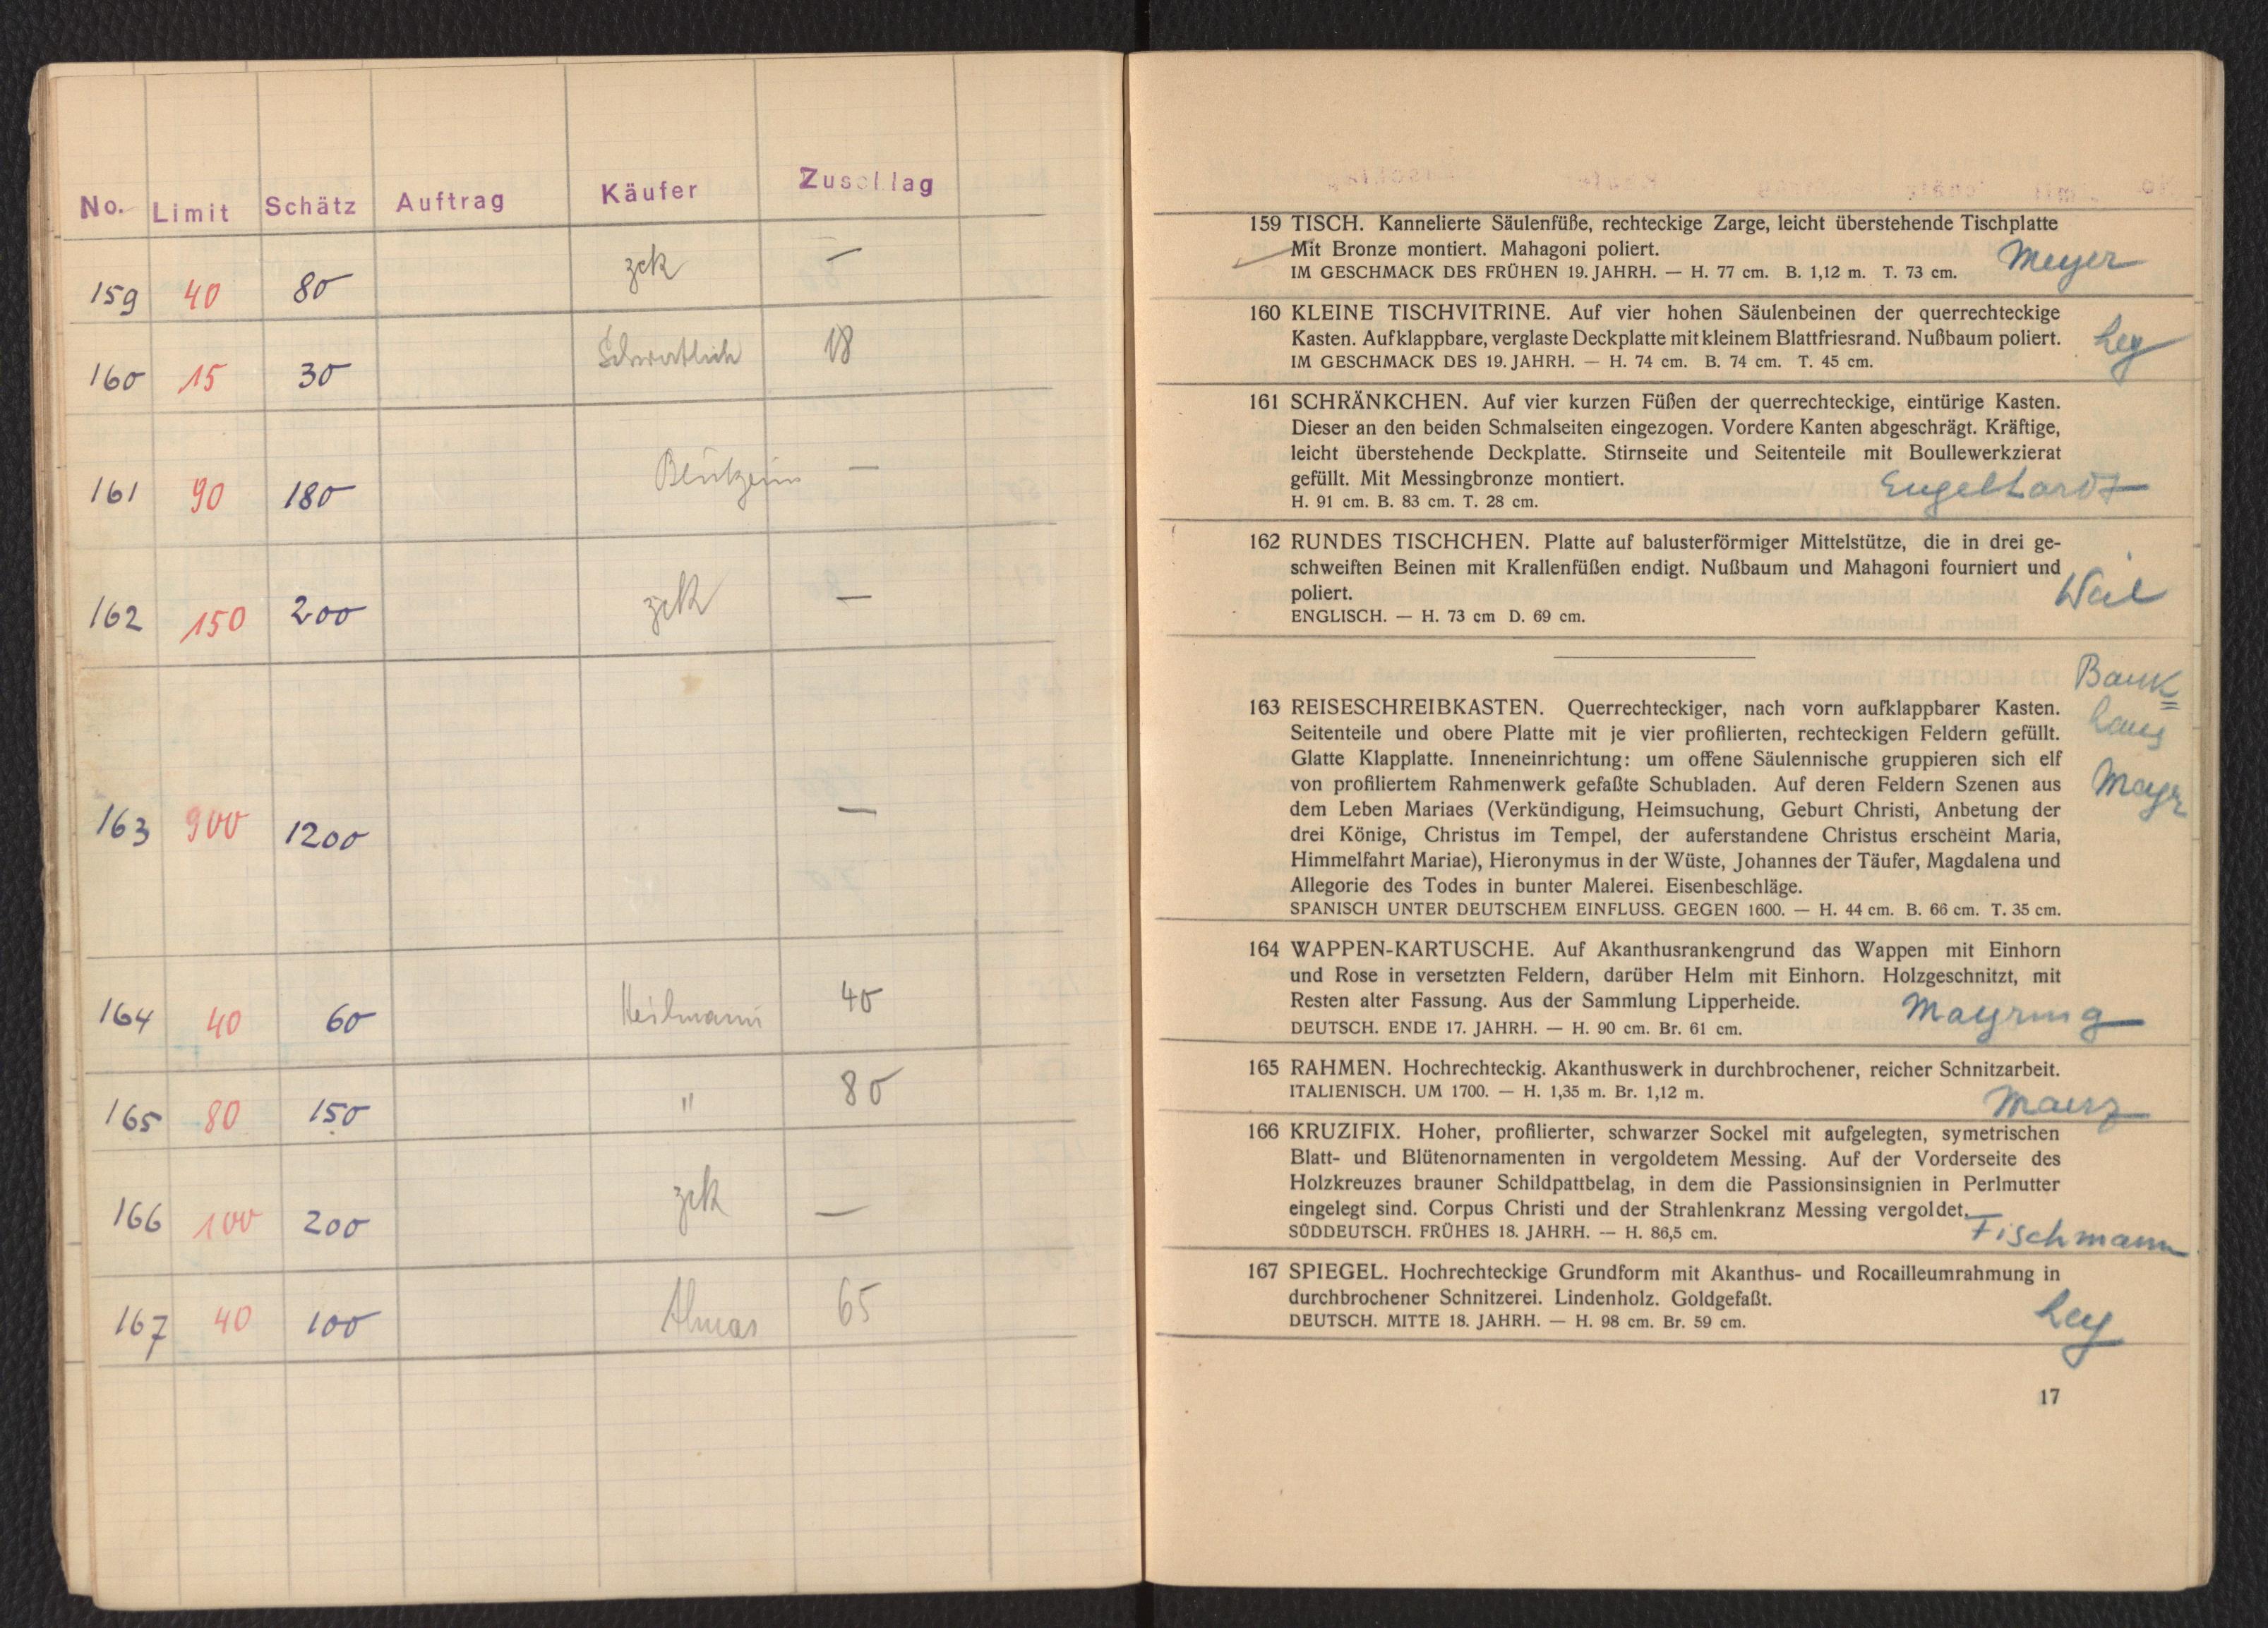 No. Limit Schätz Auftrag Käufer Zuschlag
159 40 80 zck —
160 15 30 18
161 90 180 —
162 150 200 zck —
163 900 1200 —
164 40 60 Heilmann 40
165 80 150 " 80
166 100 200 zck —
167 40 100 Almas 65
159 TISCH. Kannelierte Säulenfüße, rechteckige Zarge, leicht überstehende Tischplatte
Mit Bronze montiert. Mahagoni poliert.
Meyer
IM GESCHMACK DES FRÜHEN 19. JAHRH. — H. 77 cm. B. 1,12 m. T. 73 cm.
160 KLEINE TISCHVITRINE. Auf vier hohen Säulenbeinen der querrechteckige
Kasten. Aufklappbare, verglaste Deckplatte mit kleinem Blattfriesrand. Nußbaum poliert.
Ley
IM GESCHMACK DES 19. JAHRH. — H. 74 cm. B. 74 cm. T. 45 cm.
161 SCHRÄNKCHEN. Auf vier kurzen Füßen der querrechteckige, eintürige Kasten.
Dieser an den beiden Schmalseiten eingezogen. Vordere Kanten abgeschrägt. Kräftige,
leicht überstehende Deckplatte. Stirnseite und Seitenteile mit Boullewerkzierat
gefüllt. Mit Messingbronze montiert.
Engelhardt
H. 91 cm. B. 83 cm. T. 28 cm.
162 RUNDES TISCHCHEN. Platte auf balusterförmiger Mittelstütze, die in drei ge-
schweiften Beinen mit Krallenfüßen endigt. Nußbaum und Mahagoni fourniert und
poliert.
Weil
ENGLISCH. — H. 73 cm D. 69 cm.
Bank=
haus
Mayr
163 REISESCHREIBKASTEN. Querrechteckiger, nach vorn aufklappbarer Kasten.
Seitenteile und obere Platte mit je vier profilierten, rechteckigen Feldern gefüllt.
Glatte Klapplatte. Inneneinrichtung: um offene Säulennische gruppieren sich elf
von profiliertem Rahmenwerk gefaßte Schubladen. Auf deren Feldern Szenen aus
dem Leben Mariaes (Verkündigung, Heimsuchung, Geburt Christi, Anbetung der
drei Könige, Christus im Tempel, der auferstandene Christus erscheint Maria,
Himmelfahrt Mariae), Hieronymus in der Wüste, Johannes der Täufer, Magdalena und
Allegorie des Todes in bunter Malerei. Eisenbeschläge.
SPANISCH UNTER DEUTSCHEM EINFLUSS. GEGEN 1600. — H. 44 cm. B. 66 cm. T. 35 cm.
164 WAPPEN-KARTUSCHE. Auf Akanthusrankengrund das Wappen mit Einhorn
und Rose in versetzten Feldern, darüber Helm mit Einhorn. Holzgeschnitzt, mit
Resten alter Fassung. Aus der Sammlung Lipperheide.
Mayring
DEUTSCH. ENDE 17. JAHRH. — H. 90 cm. Br. 61 cm.
165 RAHMEN. Hochrechteckig. Akanthuswerk in durchbrochener, reicher Schnitzarbeit.
ITALIENISCH. UM 1700. — H. 1,35 m. Br. 1,12 m.
Maerz
166 KRUZIFIX. Hoher, profilierter, schwarzer Sockel mit aufgelegten, symetrischen
Blatt- und Blütenornamenten in vergoldetem Messing. Auf der Vorderseite des
Holzkreuzes brauner Schildpattbelag, in dem die Passionsinsignien in Perlmutter
eingelegt sind. Corpus Christi und der Strahlenkranz Messing vergoldet.
SÜDDEUTSCH. FRÜHES 18. JAHRH. — H. 86,5 cm.
Fischmann
167 SPIEGEL. Hochrechteckige Grundform mit Akanthus- und Rocailleumrahmung in
durchbrochener Schnitzerei. Lindenholz. Goldgefaßt.
Ley
DEUTSCH. MITTE 18. JAHRH. — H. 98 cm. Br. 59 cm.
17